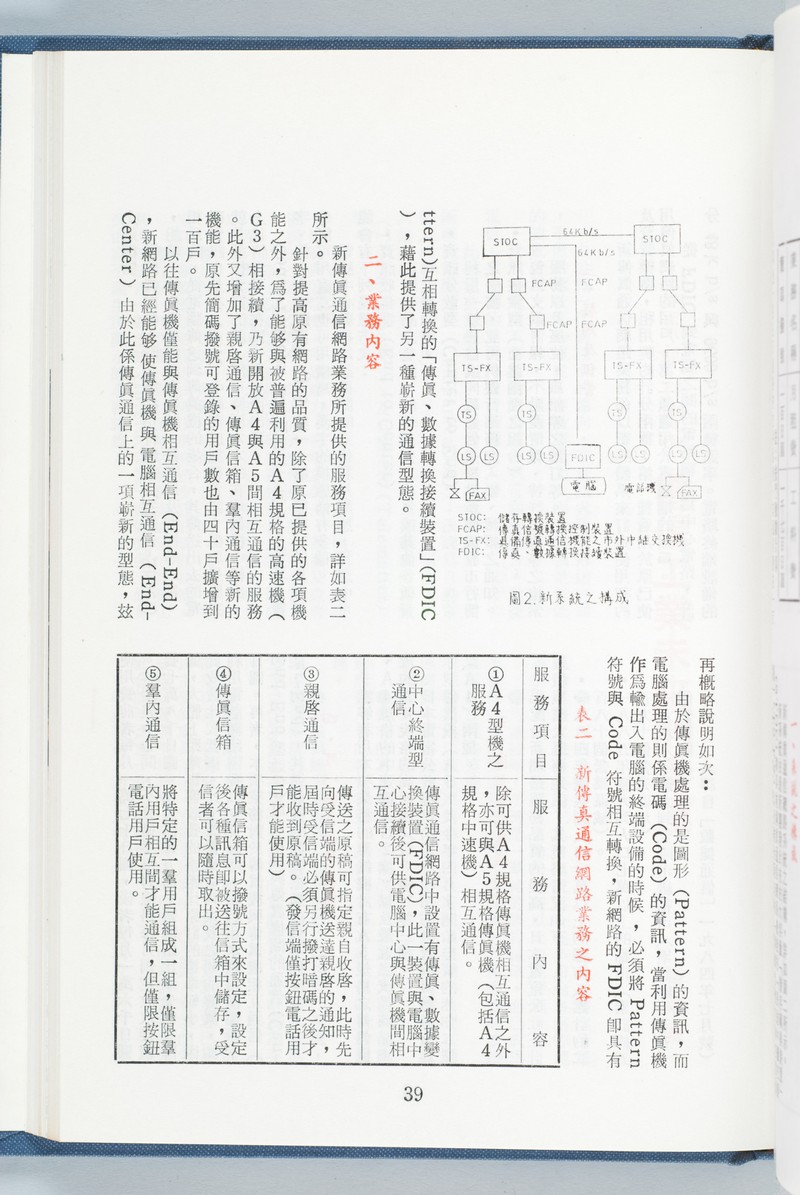 STOC
64Kb/s
STOC
64Kb/s
FCAP
FCAP
FCAP
FCAP
TS-FX
TS-FX
TS-FX
TS-FX
TS
TS
TS
TS
LS
LS
LS
LS
FDIC
LS
LS
LS
LS
FAX
電腦
電話機
FAX
STOC: 儲存轉換裝置
FCAP: 傳真信號轉換控制裝置
TS-FX: 具備傳真通信機能之市外中繼交換機
FDIC: 傳真、數據轉換接續裝置
圖2.新系統之構成
ttern)互相轉換的「傳眞、數據轉換接續裝置」(FDIC
），藉此提供了另一種嶄新的通信型態。
二、業務內容
新傳眞通信網路業務所提供的服務項目，詳如表二
所示。
針對提高原有網路的品質，除了原已提供的各項機
能之外，爲了能够與被普遍利用的A4規格的高速機（
G3）相接續，乃新開放A4與A5間相互通信的服務
。此外又增加了親啓通信、傳眞信箱、羣內通信等新的
機能，原先簡碼撥號可登錄的用戶數也由四十戶擴增到
一百戶。
以往傳眞機僅能與傳眞機相互通信（End-End）
，新網路已經能够使傳眞機與電腦相互通信（End-
Center）由於此係傳眞通信上的一項嶄新的型態，玆
再概略說明如次：
由於傳眞機處理的是圖形（Pattern）的資訊，而
電腦處理的則係電碼（Code）的資訊，當利用傳眞機
作爲輸出入電腦的終端設備的時候，必須將 Pattern
符號與 Code 符號相互轉換，新網路的 FDIC 卽具有
表二　新傳真通信網路業務之內容
服務項目
服務內容
①A4型機之
服務
除可供A4規格傳眞機相互通信之外
，亦可與A5規格傳眞機（包括A4
規格中速機）相互通信。
②中心終端型
通信
傳眞通信網路中設置有傳眞、數據變
換裝置(FDIC)，此一裝置與電腦中
心接續後可供電腦中心與傳眞機間相
互通信。
③親啓通信
傳送之原稿可指定親自收啓，此時先
向受信端的傳眞機送達親啓的通知，
屆時受信端必須另行撥打暗碼之後才
能收到原稿。（發信端僅按鈕電話用
戶才能使用）
④傳眞信箱
傳眞信箱可以撥號方式來設定，設定
後各種訊息卽被送往信箱中儲存，受
信者可以隨時取出。
⑤羣內通信
將特定的一羣用戶組成一組，僅限羣
內用戶相互間才能通信，但僅限按鈕
電話用戶使用。
39